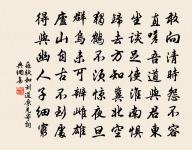 敢向清時怨不容
直嗟吾道與君東
坐談足使淮南懼
歸去方知冀北空
獨鶴不須驚夜旦
群烏未可辨雌雄
廬山自古不到處
得與幽人子細窮
蘇軾和劉道原見寄詞
典網集